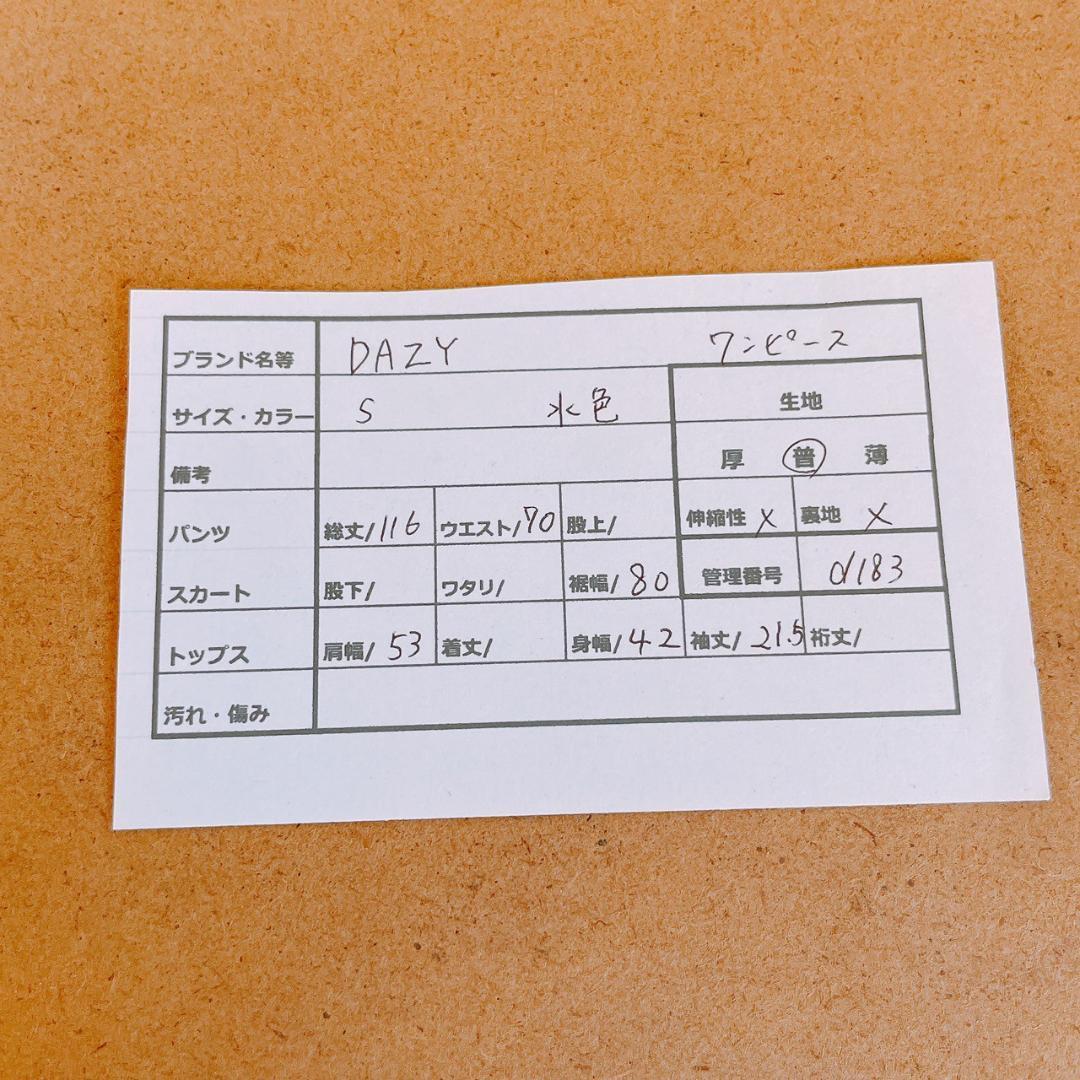 ブランド名等 DAZY ワンピース
サイズ・カラー S 水色 生地
備考 厚 普 薄
パンツ 総丈/116 ウエスト/70 股上/ 伸縮性 x 裏地 x
スカート 股下/ ワタリ/ 裾幅/80 管理番号 d183
トップス 肩幅/53 着丈/ 身幅/42 袖丈/21.5 裄丈/
汚れ・傷み